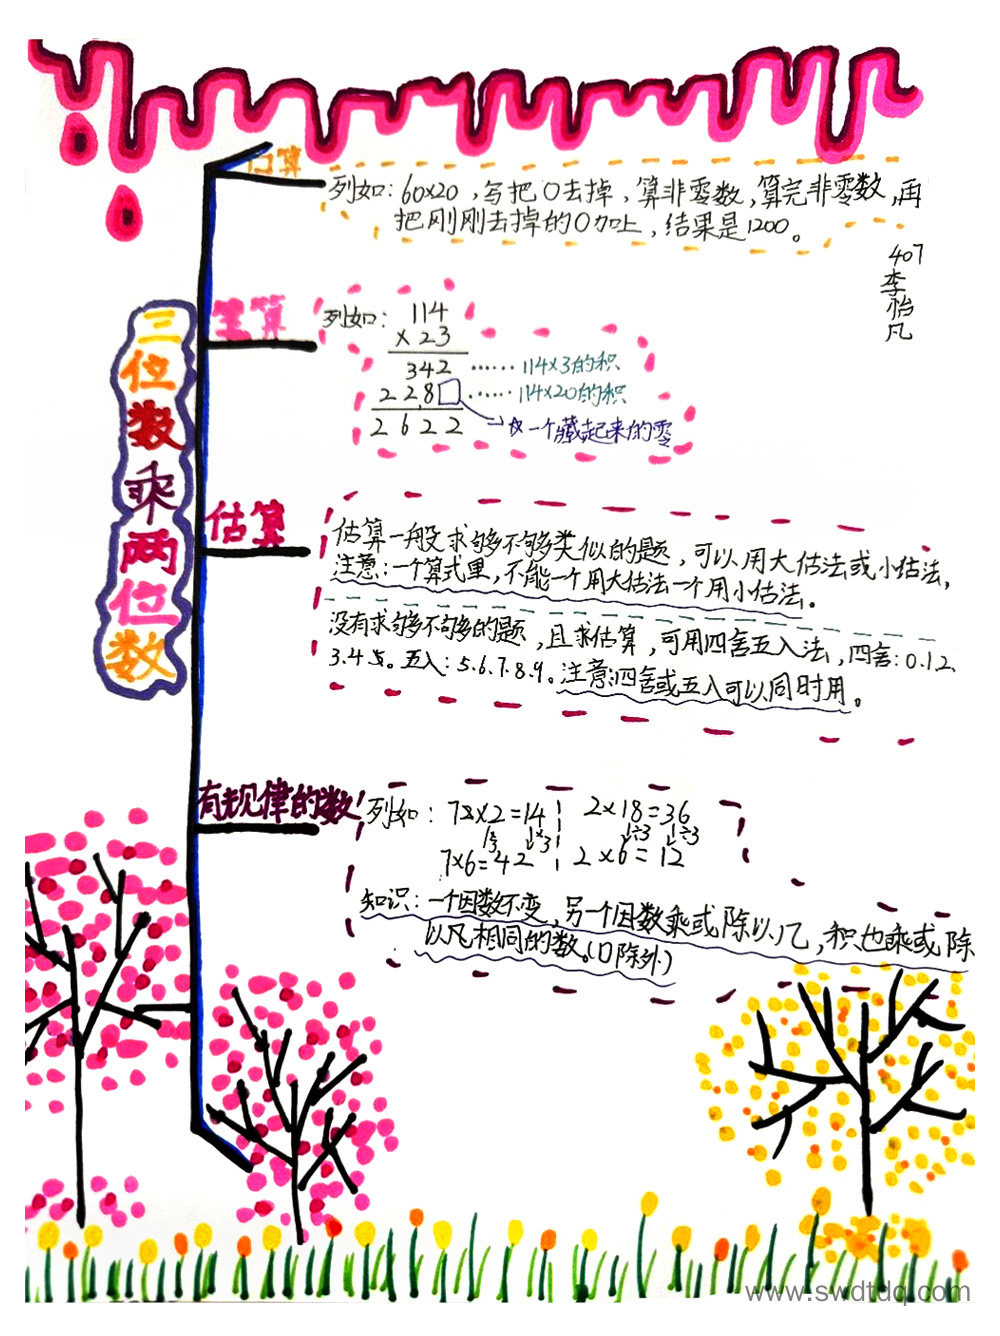 三位数乘两位数
口算
列如：60×20，写把0去掉，算非零数，算完非零数，再
把刚刚去掉的0加上，结果是1200。
407
李怡凡
笔算
列如：114
×23
342……114×3的积
228□……114×20的积
2622
→一个藏起来的零
估算
估算一般求够不够类似的题，可以用大估法或小估法，
注意：一个算式里，不能一个用大估法一个用小估法。
没有求够不够的题，且求估算，可用四舍五入法，四舍：0.1.2.
3.4.。五入：5.6.7.8.9。注意：四舍或五入可以同时用。
有规律的数
列如：7×2=14 2×18=36
↓×3 ↓÷3 ↓÷3
7×6=42 2×6=12
知识：一个因数不变，另一个因数乘或除以几，积也乘或除
以几相同的数。（0除外）
www.swdtdq.com